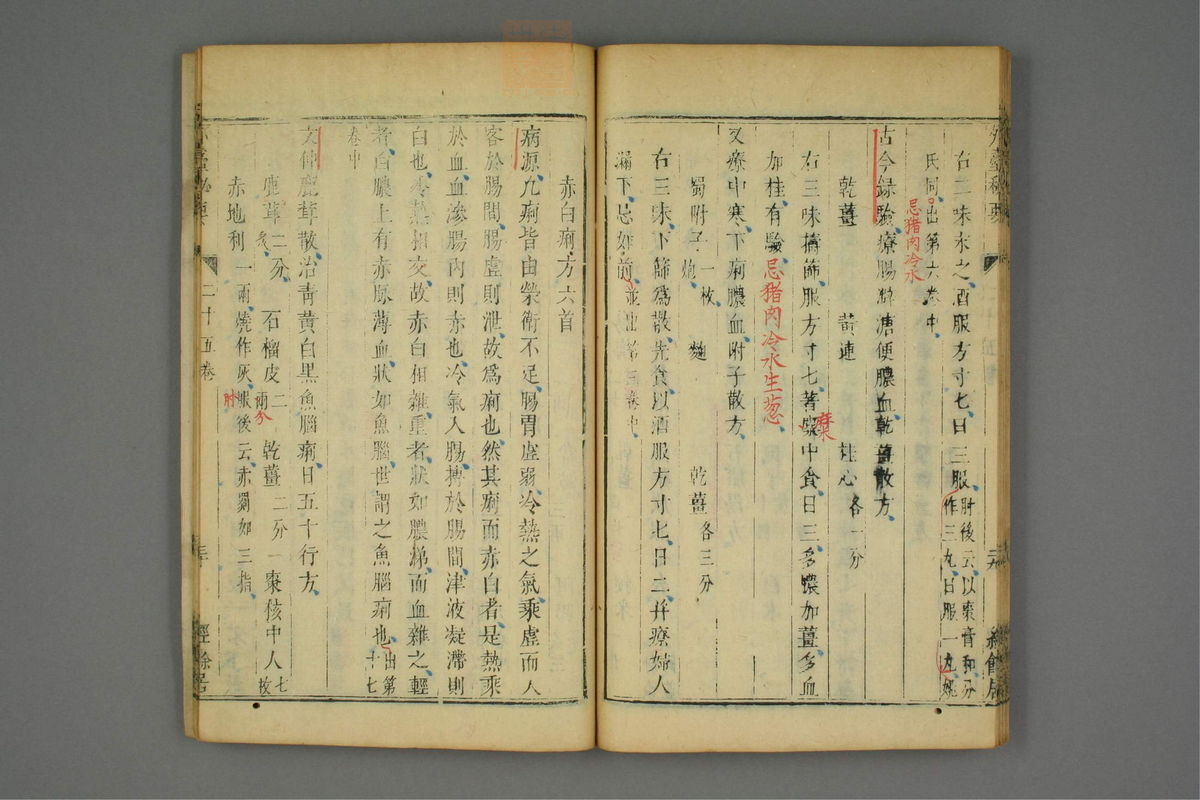 外臺秘要
右三味末之酒服方寸匕日三服肘後云以棗膏和分作三丸日服一丸姚
氏同出第六卷中
忌猪肉冷水
古今録驗療腸澼溏便膿血乾薑散方
乾薑 黄連 桂心各一分
右三味擣篩服方寸匕著糜中食日三多膿加薑多血
糜
加桂有驗忌猪肉冷水生葱
又療中寒下痢膿血附子散方
蜀附子一枚炮 麴 乾薑各三分
右三味下篩爲散先食以酒服方寸匕日二并療婦人
漏下忌如前並出第三卷中
赤白痢方六首
病源凡痢皆由榮衛不足腸胃虚弱冷熱之氣乘虚而人
客於腸間腸虚則泄故爲痢也然其痢而赤白者是熱乘
於血血滲腸内則赤也冷氣人腸搏於腸間津液凝滯則
白也冷熱相交故赤白相雜重者狀如膿涕而血雜之輕
者白膿上有赤脉薄血狀如魚腦世謂之魚腦痢也出第十七
卷中
文仲鹿茸散治青黄白黒魚腦痢日五十行方
鹿茸二分炙 石榴皮二兩 乾薑二分 棗核中人七枚
分
赤地利一兩燒作灰 後云赤罽如三指
肘
二十五卷
經餘居